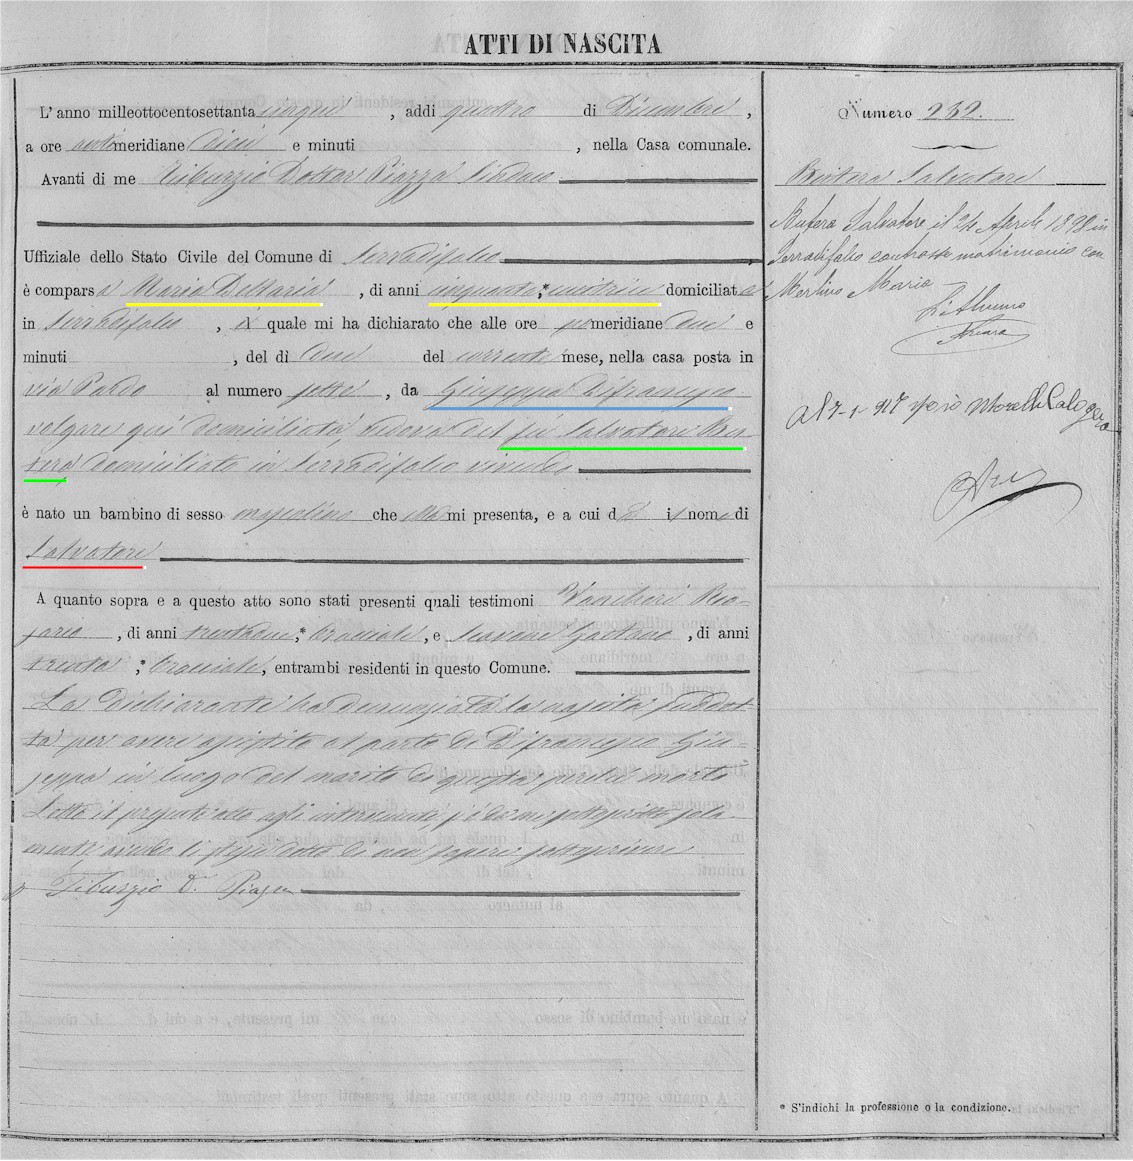 ATTI DI NASCITA
L'anno milleottocentosettanta cinque, addi quattro di Dicembre,
a ore antimeridiane dieci e minuti , nella Casa comunale.
Avanti di me Tiburzio Dottor Piazza Sindaco
Uffiziale dello Stato Civile del Comune di Serradifalco
è comparsa Maria , di anni cinquanta,* domiciliata
in Serradifalco, la quale mi ha dichiarato che alle ore pomeridiane due e
minuti , del dì due del corrente mese, nella casa posta in
via Pardo al numero sette, da Giuseppa Difrancesco
volgare qui domiciliata, del fu Salvatore Bu-
tera domiciliato in Serradifalco
è nato un bambino di sesso mascolino che mi presenta, e a cui dà il nome di
Salvatore
A quanto sopra e a questo atto sono stati presenti quali testimoni Ro-
sario, di anni * , e Gaetano, di anni
trenta,* , entrambi residenti in questo Comune.
La dichiarante ha denunziata la nascita suddet-
ta per avere assistito al parto di Difrancesco Giu-
seppa in luogo del marito di questa perchè morto
Letto il presente atto agli intervenuti si è da me sottoscritto sola-
mente avendo li stessi detto di non sapere sottoscrivere
Tiburzio D. Piazza
Numero 232.
Butera Salvatore
Butera Salvatore il 24 Aprile 1898 in
Serradifalco contrasse matrimonio con
Merlino Maria
Al 7-1-917 sposò Calogera
* S'indichi la professione o la condizione.